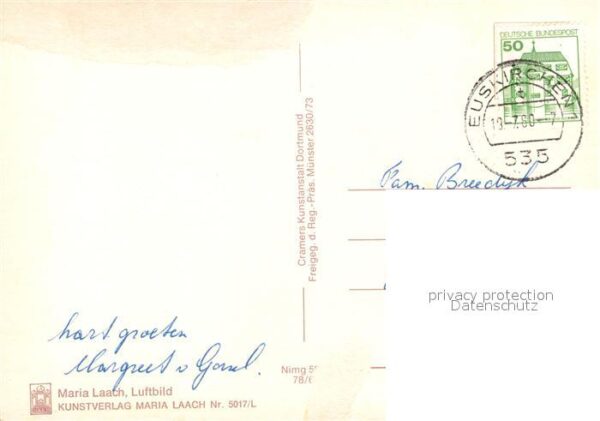 DEUTSCHE BUNDESPOST
50
EUSKIRCHEN
19.-7.80-7
535
Cramers Kunstanstalt Dortmund
Freigeg. d. Reg.-Präs. Münster 2630/73
Fam. Breedijk
privacy protection
Datenschutz
hart groeten
Margreet v
Nimg
78/
Maria Laach, Luftbild
KUNSTVERLAG MARIA LAACH Nr. 5017/L